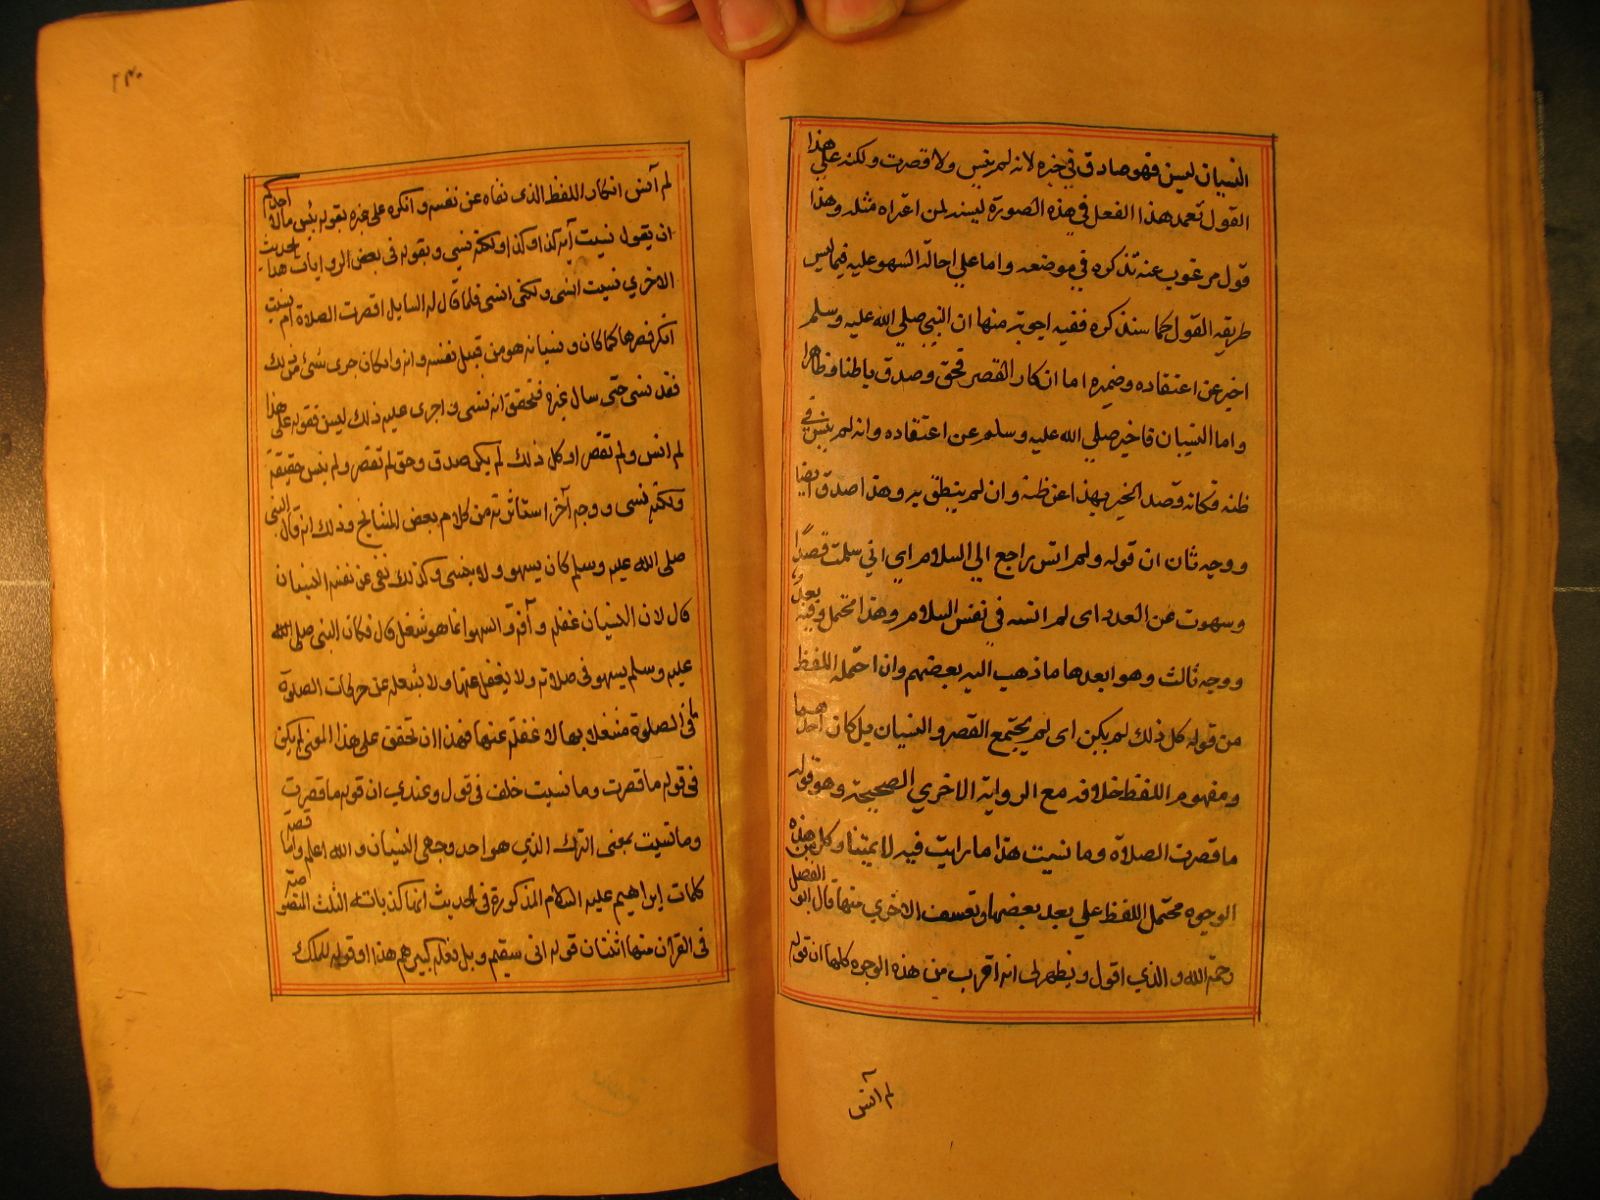 النسيان ليسن فهو صادق في خبره لانه لم ينس ولا قصرت ولكنه علي هذا
القول تعمد هذا الفعل في هذه الصورة ليسنه لمن اعتراه مثله وهذا
قول مرغوب عنه نذكره في موضعه واما علي احالة السهو عليه فيما ليس
طريقه القول كما سنذكره ففيه اجوبة منها ان النبي صلي الله عليه وسلم
اخبر عن اعتقاده وضميره اما انكار القصر فحق وصدق باطنا وظاهرا
واما النسيان فاخبر صلي الله عليه وسلم عن اعتقاده وانه لم ينس في
ظنه فكانه قصد الخبر بهذا عن ظنه وان لم ينطق به وهذا صدق ايضا
ووجه ثان ان قوله ولم انس راجع الي السلام اي اني سلمت قصدا
وسهوت عن العدد اى لم انسه في نفس السلام وهذا محتمل وفيه بعد
ووجه ثالث وهو ابعدها ما ذهب اليه بعضهم وان احتمله اللفظ
من قوله كل ذلك لم يكن اى لم يجتمع القصر والنسيان بل كان احدهما
ومفهوم اللفظ خلافه مع الرواية الاخري الصحيحة وهو قوله
ما قصرت الصلاة وما نسيت هذا ما رايت فيه لائمتنا وكل من هذه
الوجوه محتمل اللفظ علي بعد بعضها وتعسف الاخري منها قال ابو الفضل
رحمة الله والذي اقول ويظهر لى انه اقرب من هذه الوجوه كلها ان قوله
لم انس
٢٣٠
لم آنس انكار اللفظ الذى نفاه عن نفسه وانكره على غيره بقوله بئس ما لاحدكم
ان يقول نسيت آية كذا وكذا ولكنه نسي وبقوله فى بعض الروايات هذا الحديث
الاخري نسيت انسى ولكنى انسى فلما قال له السايل اقصرت الصلاة ام نسيت
انكر قصرها كما كان ونسيانه هو من قبل نفسه وانه وان كان جرى شئ من ذلك
فقد نسى حتى سال غيره فتحقق انه نسى واجرى عليه ذلك ليسن فقوله على هذا
لم انس ولم تقصر او كل ذلك لم يكن صدق وحق لم تقصر ولم ينس حقيقة
ولكنه نسى ووجه آخر استاثرته من كلام بعض المشايخ وذلك انه قال النبى
صلى الله عليه وسلم كان يسهو ولا ينسى وكذلك نفى عن نفسه النسيان
قال لان النسيان غفلة وآفة والسهو انما هو شغل قال فكان النبى صلى الله
عليه وسلم يسهو فى صلاته ولا يغفل عنها ولا يشغله عن حركات الصلوة
ما فى الصلوة شغلا بها لا غفلة عنها فهذا ان تحقق على هذا المعنى لم يكن
فى قوله ما قصرت وما نسيت خلف فى قول وعندي ان قوله ما قصرت
وما نسيت بمعنى الترك الذي هو احد وجهى النسيان والله اعلم واما قصة
كلمات إبراهيم عليه السلام المذكورة فى الحديث انها كذباته الثلث المنصوصة
فى القرآن منها اثنتان قوله انى سقيم وبل فعله كبيرهم هذا وقوله للملك